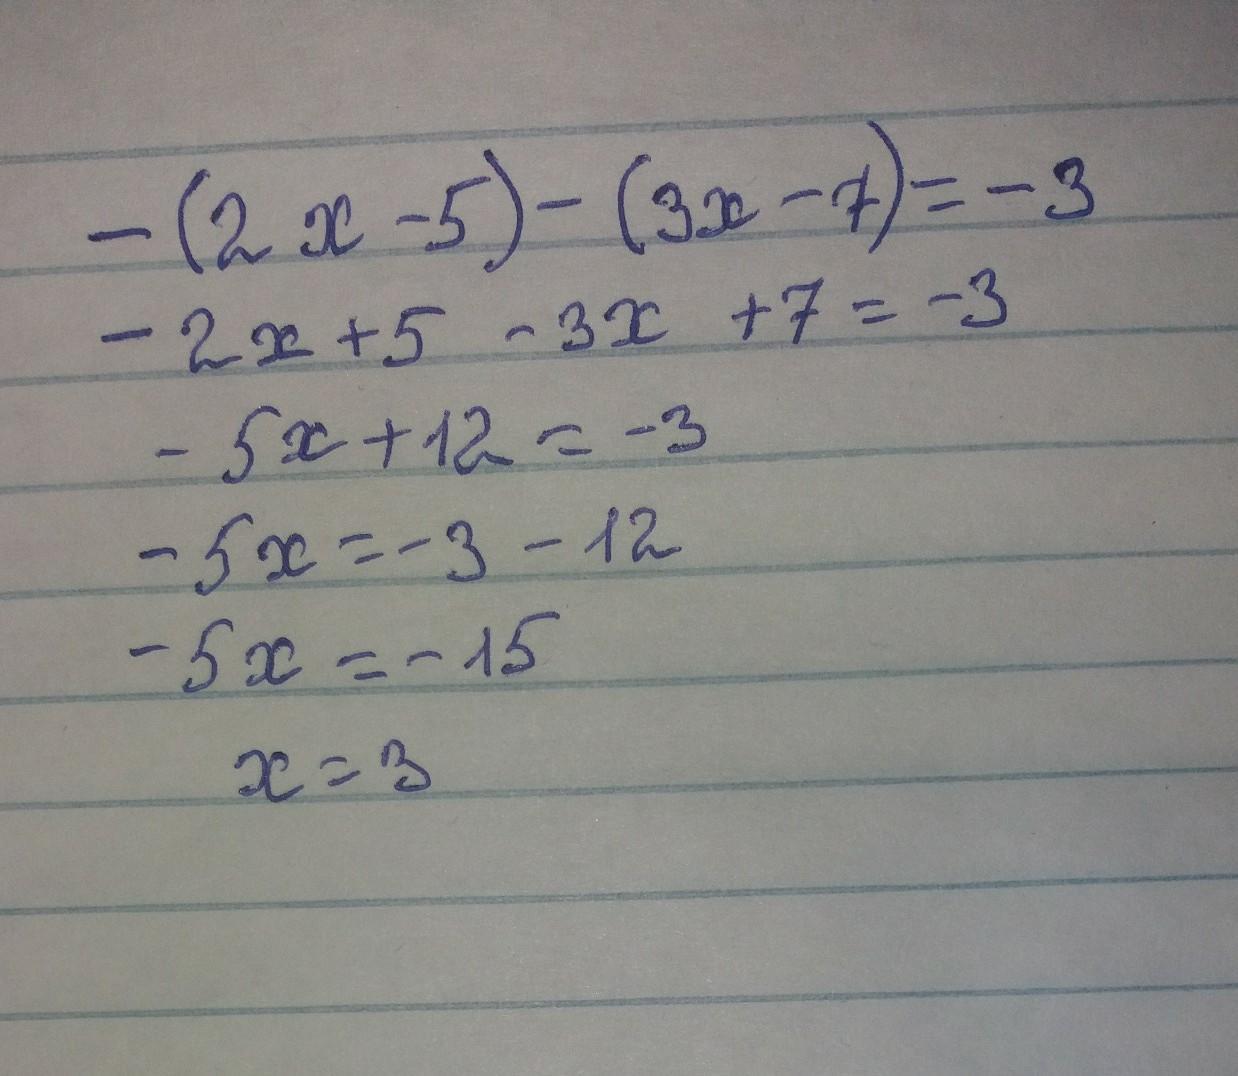 -(2x-5)-(3x-7)=-3
-2x+5 -3x +7=-3
-5x+12=-3
-5x=-3-12
-5x=-15
x=3